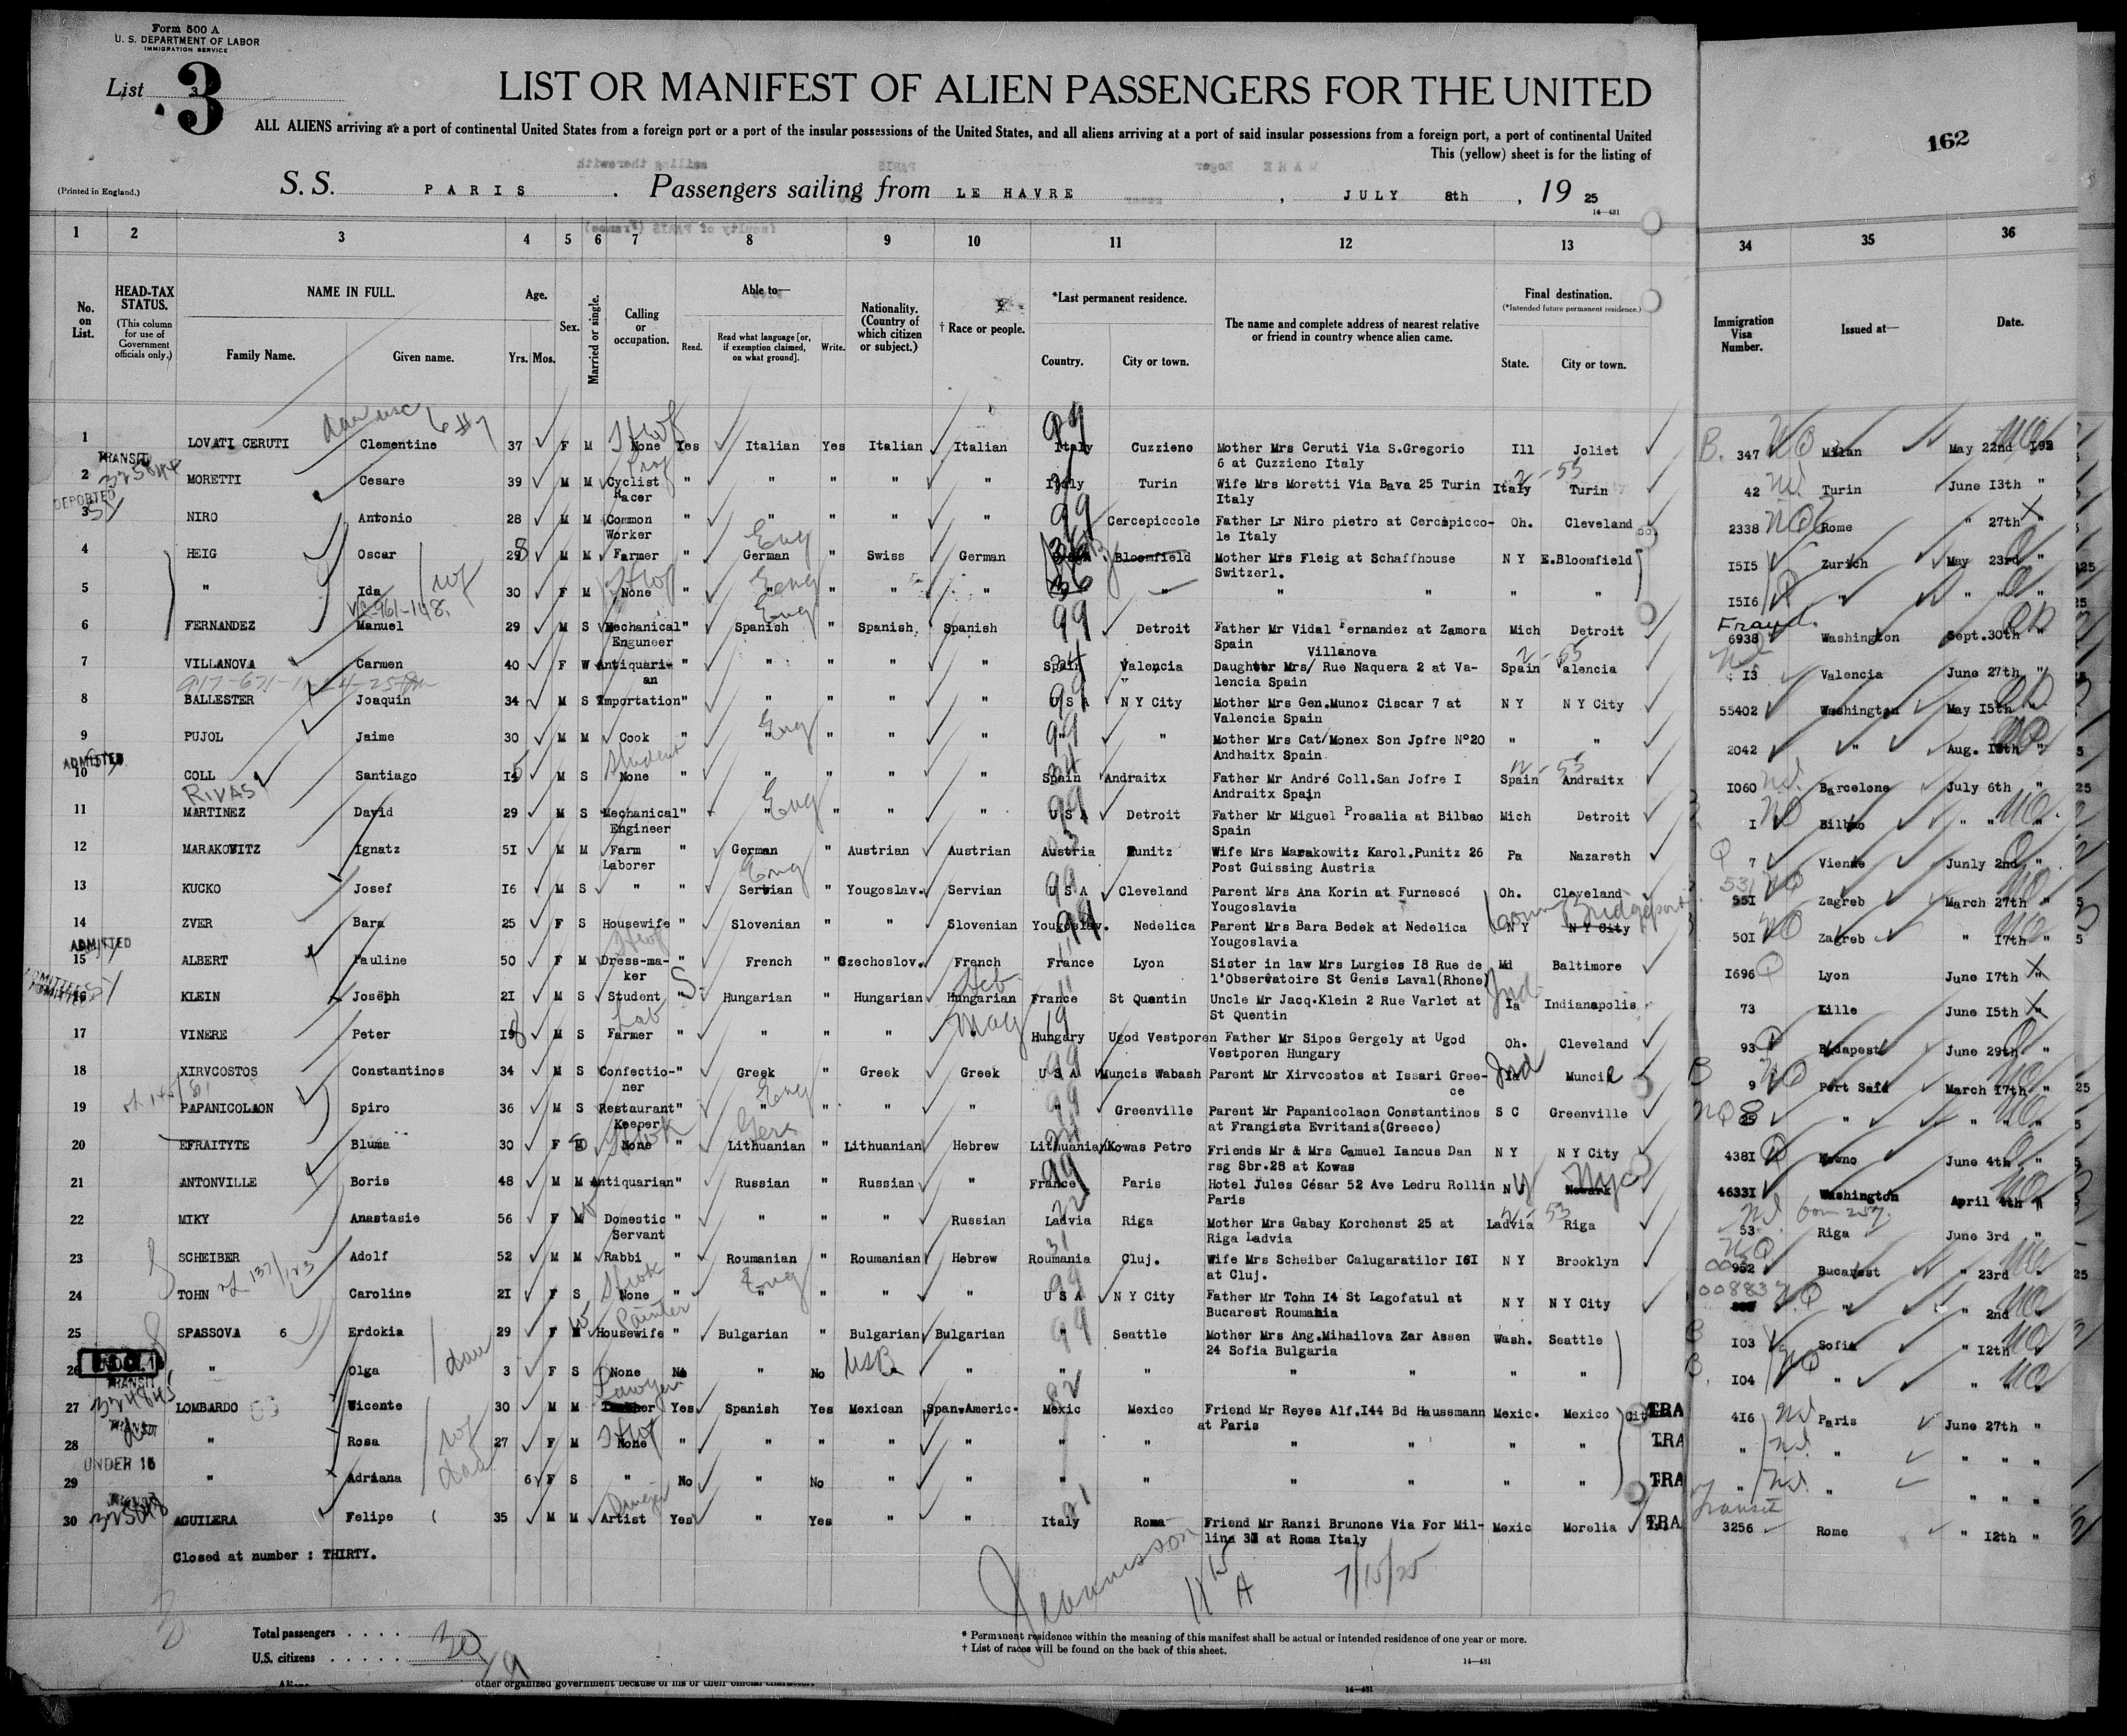 Form 500 A
U. S. DEPARTMENT OF LABOR
IMMIGRATION SERVICE
List 3
3
LIST OR MANIFEST OF ALIEN PASSENGERS FOR THE UNITED
ALL ALIENS arriving at a port of continental United States from a foreign port or a port of the insular possessions of the United States, and all aliens arriving at a port of said insular possessions from a foreign port, a port of continental United
This (yellow) sheet is for the listing of
162
(Printed in England.)
S. S. PARIS . Passengers sailing from LE HAVRE , JULY 8th , 19 25
14—431
1 2 3 4 5 6 7 8 9 10 11 12 13 34 35 36
No. on List.
HEAD-TAX STATUS.
(This column for use of Government officials only.)
NAME IN FULL.
Family Name. Given name.
Age.
Yrs. Mos.
Sex.
Married or single.
Calling or occupation.
Able to—
Read. Read what language [or, if exemption claimed, on what ground]. Write.
Nationality. (Country of which citizen or subject.)
† Race or people.
*Last permanent residence.
Country. City or town.
The name and complete address of nearest relative or friend in country whence alien came.
Final destination.
(*Intended future permanent residence.)
State. City or town.
Immigration Visa Number.
Issued at—
Date.
1 LOVATI CERUTI Clementine 37 F M None Yes Italian Yes Italian Italian Italy Cuzzieno Mother Mrs Ceruti Via S.Gregorio Ill Joliet 347 Milan May 22nd 192
6 at Cuzzieno Italy
TRANSIT
2 MORETTI Cesare 39 M M Cyclist " " " " " Italy Turin Wife Mrs Moretti Via Bava 25 Turin Italy Turin 42 Turin June 13th "
Racer Italy
DEPORTED
3 NIRO Antonio 28 M M Common " " " " " Cercepiccole Father Lr Niro pietro at Cercepicco- Oh. Cleveland 2338 Rome " 27th "
Worker le Italy
4 HEIG Oscar 29 M M Farmer " German " Swiss German Bloomfield Mother Mrs Fleig at Schaffhouse N Y E.Bloomfield I5I5 Zurich May 23rd "
Switzerl.
5 " Ida 30 F M None " " " " " " " " " " I5I6 " " " "
6 FERNANDEZ Manuel 29 M S Mechanical " Spanish " Spanish Spanish 99 Detroit Father Mr Vidal Fernandez at Zamora Mich Detroit 6938 Washington Sept.30th "
Enguneer Spain
7 VILLANOVA Carmen 40 F W Antiquari- " " " " " Spain Valencia Daughter Mrs/ Villanova Rue Naquera 2 at Va- Spain Valencia I3 Valencia June 27th "
an lencia Spain
8 BALLESTER Joaquin 34 M S Importation " " " " U S A N Y City Mother Mrs Gen.Munoz Ciscar 7 at N Y N Y City 55402 Washington May I5th "
Valencia Spain
9 PUJOL Jaime 30 M M Cook " " " " " " " Mother Mrs Cat/Monex Son Jofre N°20 " " 2042 " Aug. "
Andhaitx Spain
ADMITTED
10 COLL Santiago M S None " " " " " Spain Andraitx Father Mr André Coll.San Jofre I Spain Andraitx I060 Barcelone July 6th "
Andraitx Spain
RIVAS
11 MARTINEZ David 29 M S Mechanical " " " " " U S A Detroit Father Mr Miguel Prosalia at Bilbao Mich Detroit I Bilbao " " "
Engineer Spain
12 MARAKOWITZ Ignatz 5I M M Farm " German " Austrian Austrian Austria Punitz Wife Mrs Marakowitz Karol.Punitz 26 Pa Nazareth 7 Vienne Junly 2nd "
Laborer Post Guissing Austria
13 KUCKO Josef I6 M S " " Servian " Yougoslav. Servian U S A Cleveland Parent Mrs Ana Korin at Furnescé Oh. Cleveland 55I Zagreb March 27th "
Yougoslavia
14 ZVER Bara 25 F S Housewife " Slovenian " " Slovenian Yougoslav. Nedelica Parent Mrs Bara Bedek at Nedelica N Y N Y City Conn Bridgeport 50I Zagreb " I7th "
Yougoslavia
ADMITTED
15 ALBERT Pauline 50 F M Dress-ma- " French " Czechoslov. French France Lyon Sister in law Mrs Lurgies I8 Rue de Md Baltimore I696 Lyon June I7th "
ker l'Observatoire St Genis Laval(Rhone)
16 KLEIN Joseph 2I M S Student " Hungarian " Hungarian Hungarian France St Quentin Uncle Mr Jacq.Klein 2 Rue Varlet at Ia Indianapolis 73 Lille June I5th "
St Quentin
17 VINERE Peter M S Farmer " " " " " Hungary Ugod Vestporen Father Mr Sipos Gergely at Ugod Oh. Cleveland 93 Budapest June 29th "
Vestporen Hungary
18 XIRVCOSTOS Constantinos 34 M S Confectio- " Greek " Greek Greek U S A Muncis Wabash Parent Mr Xirvcostos at Issari Gree- Ind Muncie 9 Port Said March I7th "
ner ce
19 PAPANICOLAON Spiro 36 M S Restaurant " " " " " " Greenville Parent Mr Papanicolaon Constantinos S C Greenville 25 " " " "
Keeper at Frangista Evritanis(Greece)
20 EFRAITYTE Bluma 30 F None " Lithuanian " Lithuanian Hebrew Lithuanian Kowas Petro Friends Mr & Mrs Camuel Iancus Dan N Y N Y City 438I Kowno June 4th "
rsg Sbr.28 at Kowas
21 ANTONVILLE Boris 48 M M Antiquarian " Russian " Russian " France Paris Hotel Jules César 52 Ave Ledru Rollin N Y Newark NYC 4633I Washington April 4th "
Paris
22 MIKY Anastasie 56 F Domestic " " " " Russian Ladvia Riga Mother Mrs Gabay Korchenst 25 at Ladvia Riga 53 Riga June 3rd "
Servant Riga Ladvia
23 SCHEIBER Adolf 52 M M Rabbi " Roumanian " Roumanian Hebrew Roumania Cluj. Wife Mrs Scheiber Calugaratilor I6I N Y Brooklyn Bucarest " 23rd "
at Cluj.
24 TOHN Caroline 2I F S None " " " " " U S A N Y City Father Mr Tohn I4 St Lagofatul at N Y N Y City 00883 " " 2nd "
Bucarest Roumania
25 SPASSOVA 6 Erdokia 29 F Housewife " Bulgarian " Bulgarian Bulgarian " Seattle Mother Mrs Ang.Mihailova Zar Assen Wash. Seattle I03 Sofia " I2th "
24 Sofia Bulgaria
26 " Olga 3 F S None No " No USA " " " " " " " I04 " " "
TRANSIT
27 LOMBARDO Vicente 30 M M Lawyer Yes Spanish Yes Mexican Span-Americ. Mexic Mexico Friend Mr Reyes Alf.I44 Bd Haussmann Mexic. Mexico City TRA 4I6 Paris June 27th "
at Paris
28 " Rosa 27 F M None " " " " " " " " " " " TRA " " " " "
UNDER 16
29 " Adriana 6 F S " No " No " " " " " " " " TRA " " " " "
30 AGUILERA Felipe 35 M M Artist Yes " Yes " " Italy Roma Friend Mr Ranzi Brunone Via For Mil- Mexic Morelia TRA Transit 3256 Rome " I2th "
lina at Roma Italy
Closed at number : THIRTY.
7/15/25
Total passengers . . . . 30
U.S. citizens . . . . .
* Permanent residence within the meaning of this manifest shall be actual or intended residence of one year or more.
† List of races will be found on the back of this sheet.
14—431
other organized government because of his or their official character.
14—431